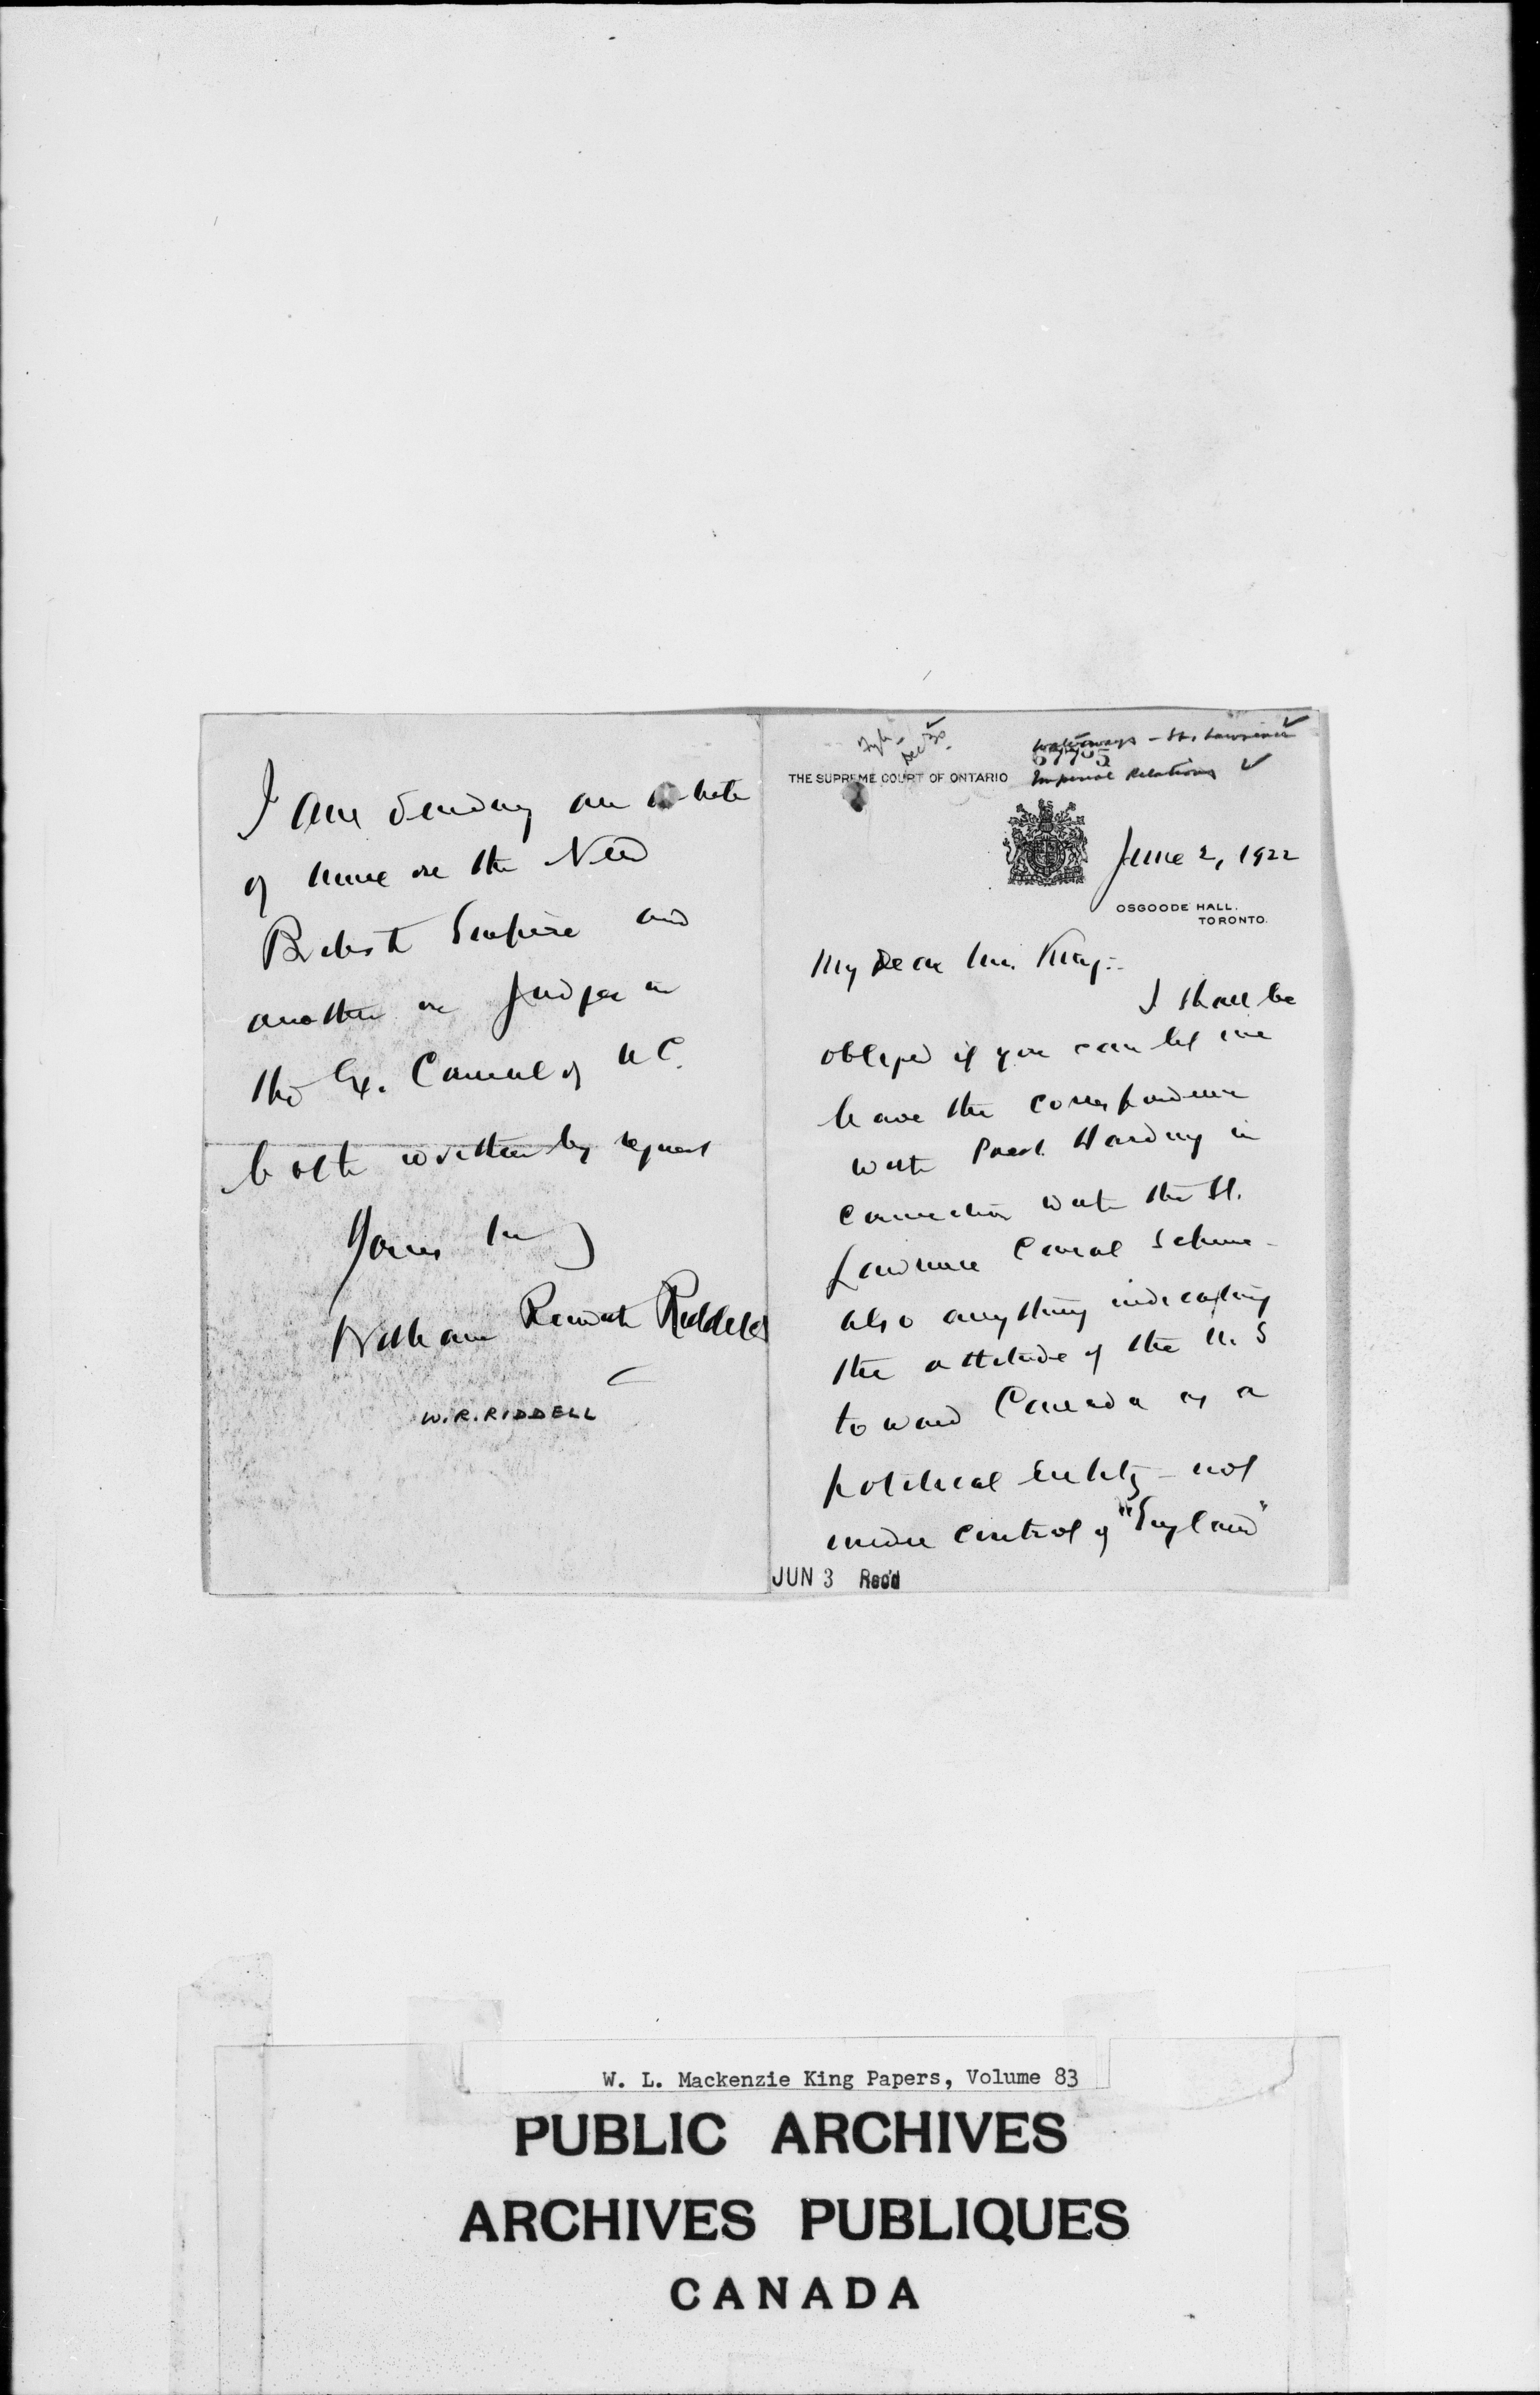 Waterways - St. Lawrence
67705
THE SUPREME COURT OF ONTARIO
Imperial Relations
June 2, 1922
OSGOODE HALL.
TORONTO.
My Dear Mr. King:-
I shall be
obliged if you can let me
have the correspondence
with Prest. Harding in
connection with the St.
Lawrence Canal Scheme -
also anything indicating
the attitude of the U.S
toward Canada as a
political entity - not
under control of "England"
JUN 3 Rec'd
I am sending an article
of mine on the New
British Empire and
another on Judges in
the Ex. Council of U C.
both written by request
Yours truly
William Renwick Riddell
W.R.RIDDELL
W. L. Mackenzie King Papers, Volume 83
PUBLIC ARCHIVES
ARCHIVES PUBLIQUES
CANADA